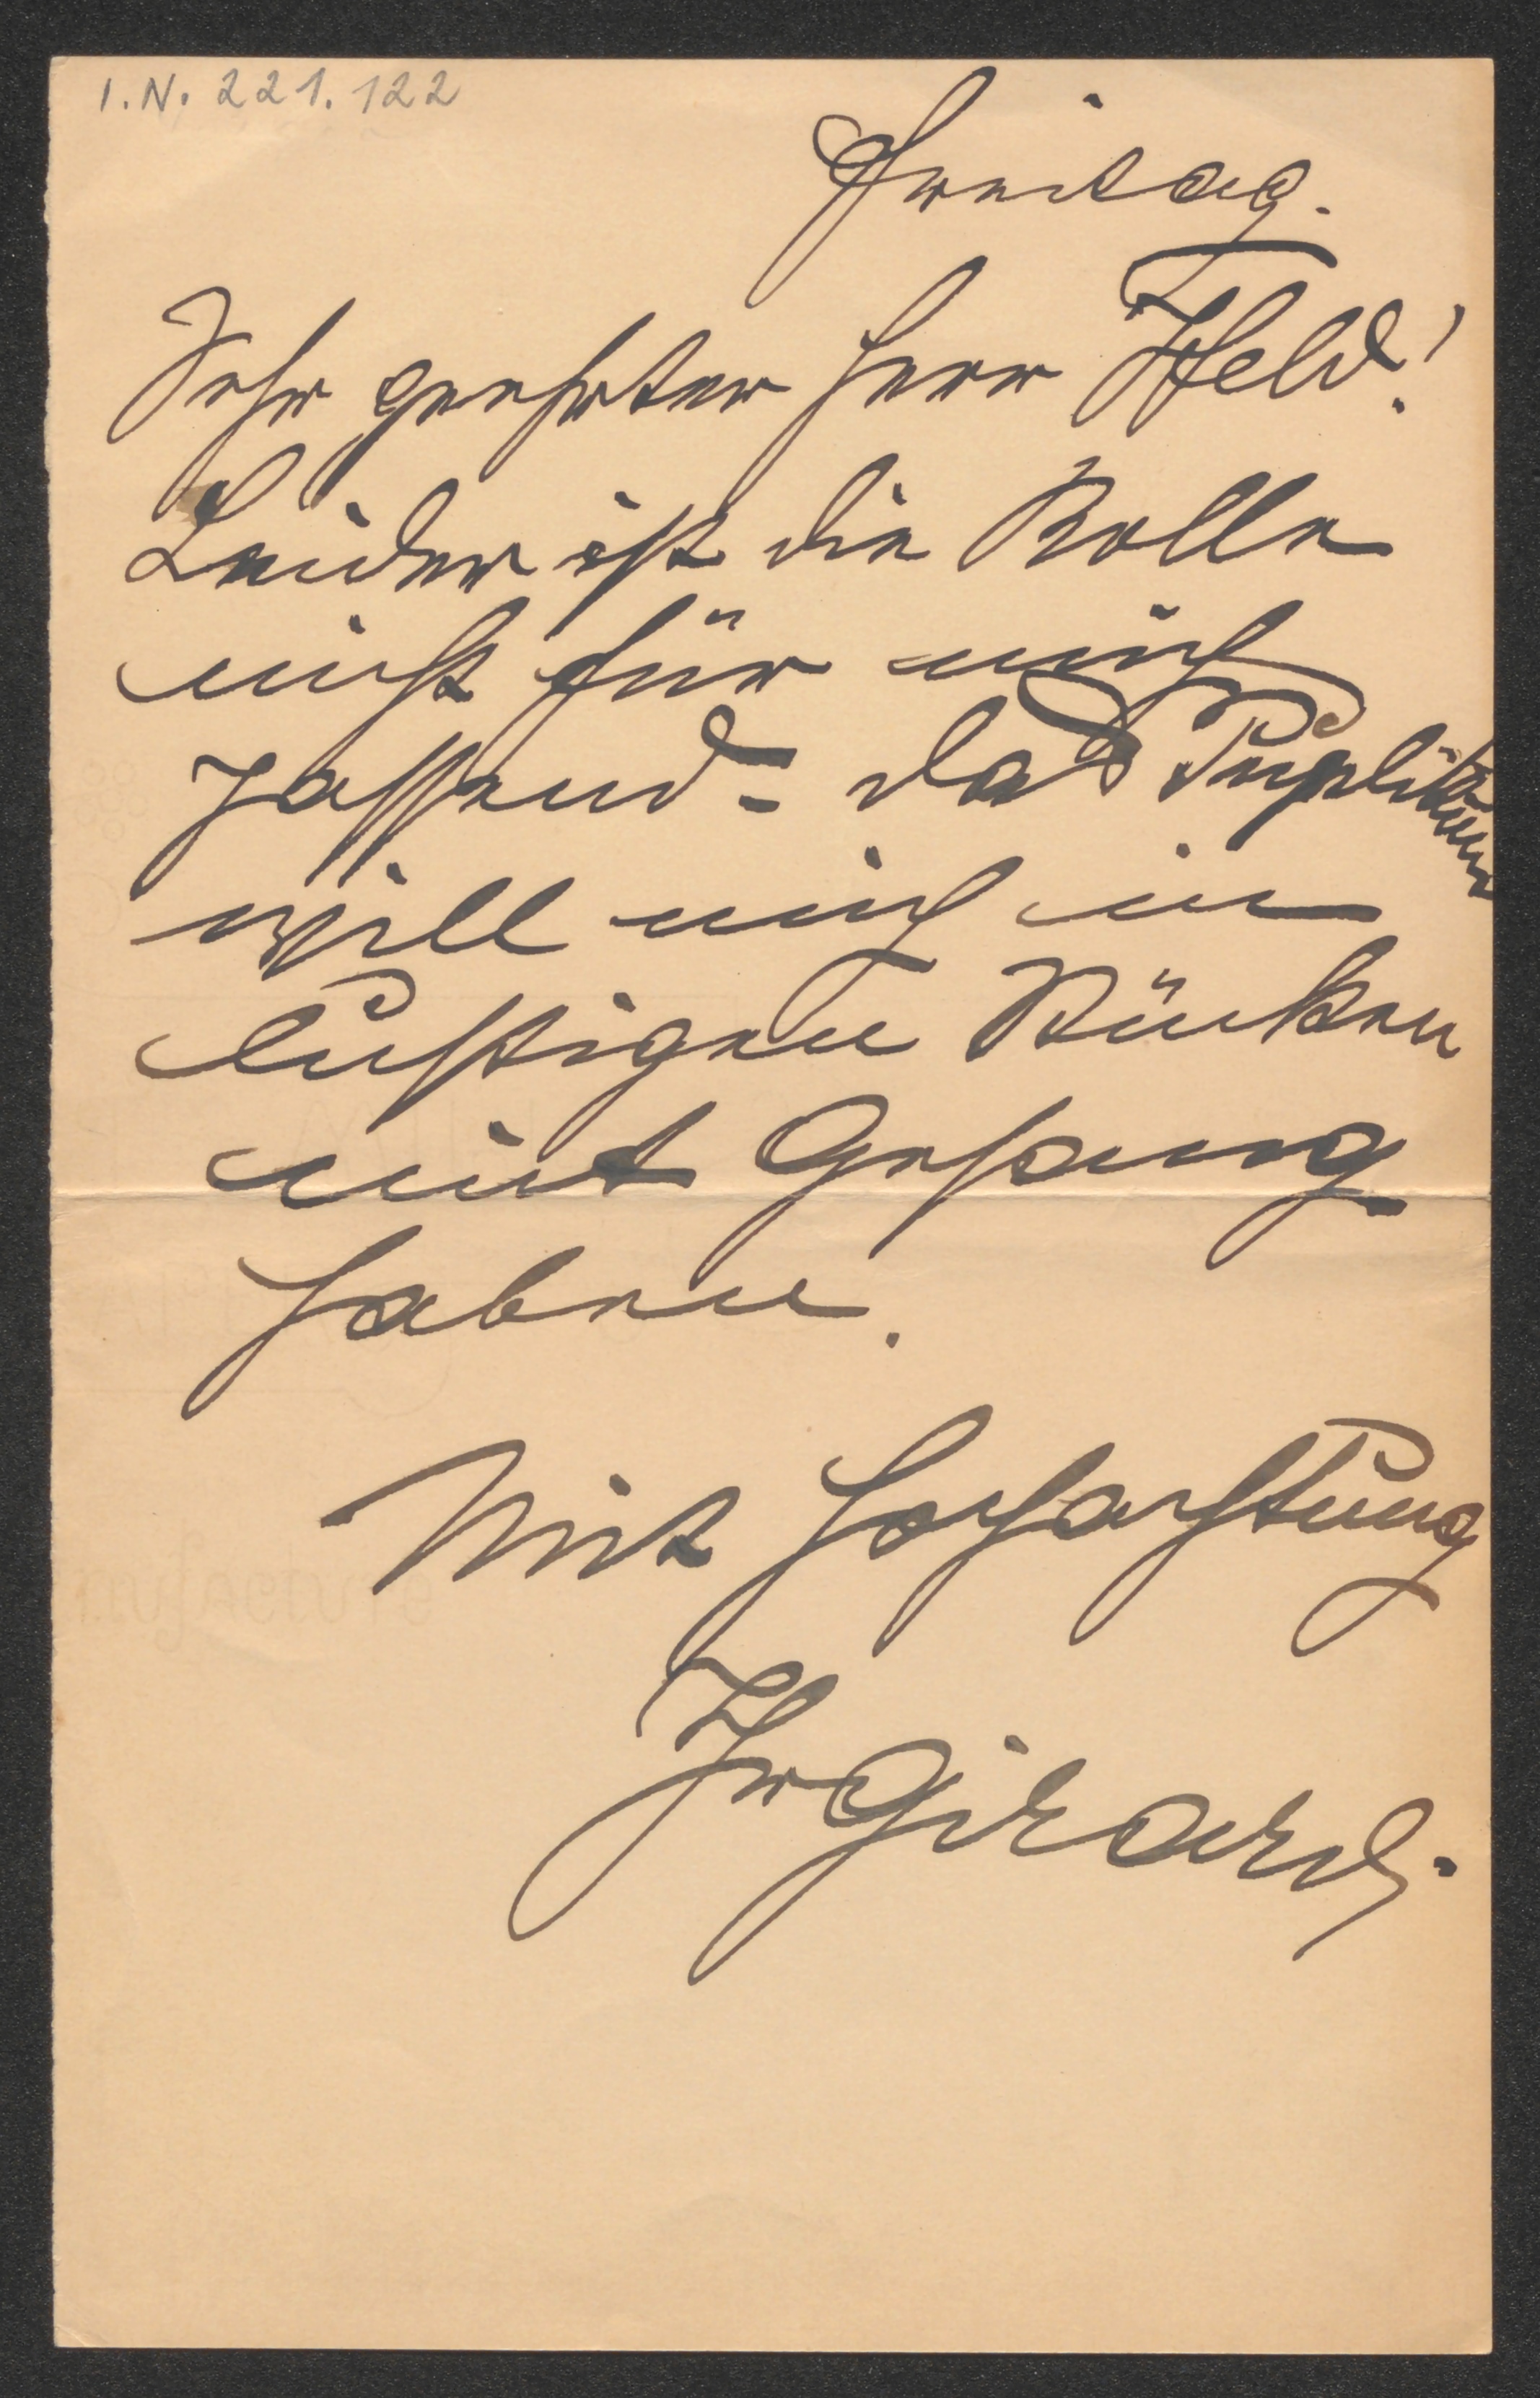 I.N. 221.122
Freitag.
Sehr geehrter Herr Held!
Leider ist die Rolle
nicht für mich
passend = das Puplikum
will mich in
lustigen Stücken
mit Gesang
haben.
Mit Hochachtung
Ihr Girardi